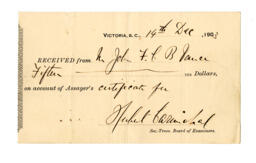 VICTORIA, B.C. 19th Dec 190
RECEIVED from Mr John F. C. B. Vance
Fifteen Dollars,
on account of Assayer's certificate fee
Herbert Carmichael
Sec.-Treas. Board of Examiners.